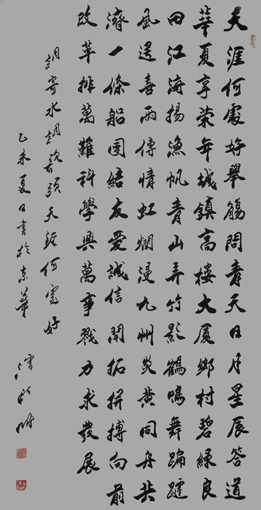 天涯何處好舉觴問青天日月星辰答道
華夏享榮年城鎮高樓大廈鄉村碧綠良
田江海揚漁帆青山弄竹影鶴鳴舞蹁躚
風送喜雨傳情虹爛漫九州炎黃同舟共
濟一條船團結友愛誠信開拓拼搏向前
改革排萬難科學興萬事戮力求發展
調寄水調歌頭天涯何處好
乙未夏日書於京華